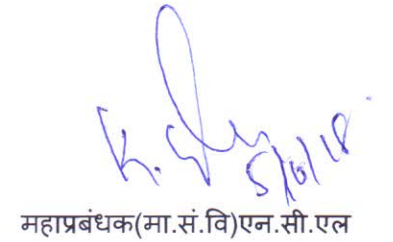 5/6/18
महाप्रबंधक(मा.सं.वि)एन.सी.एल